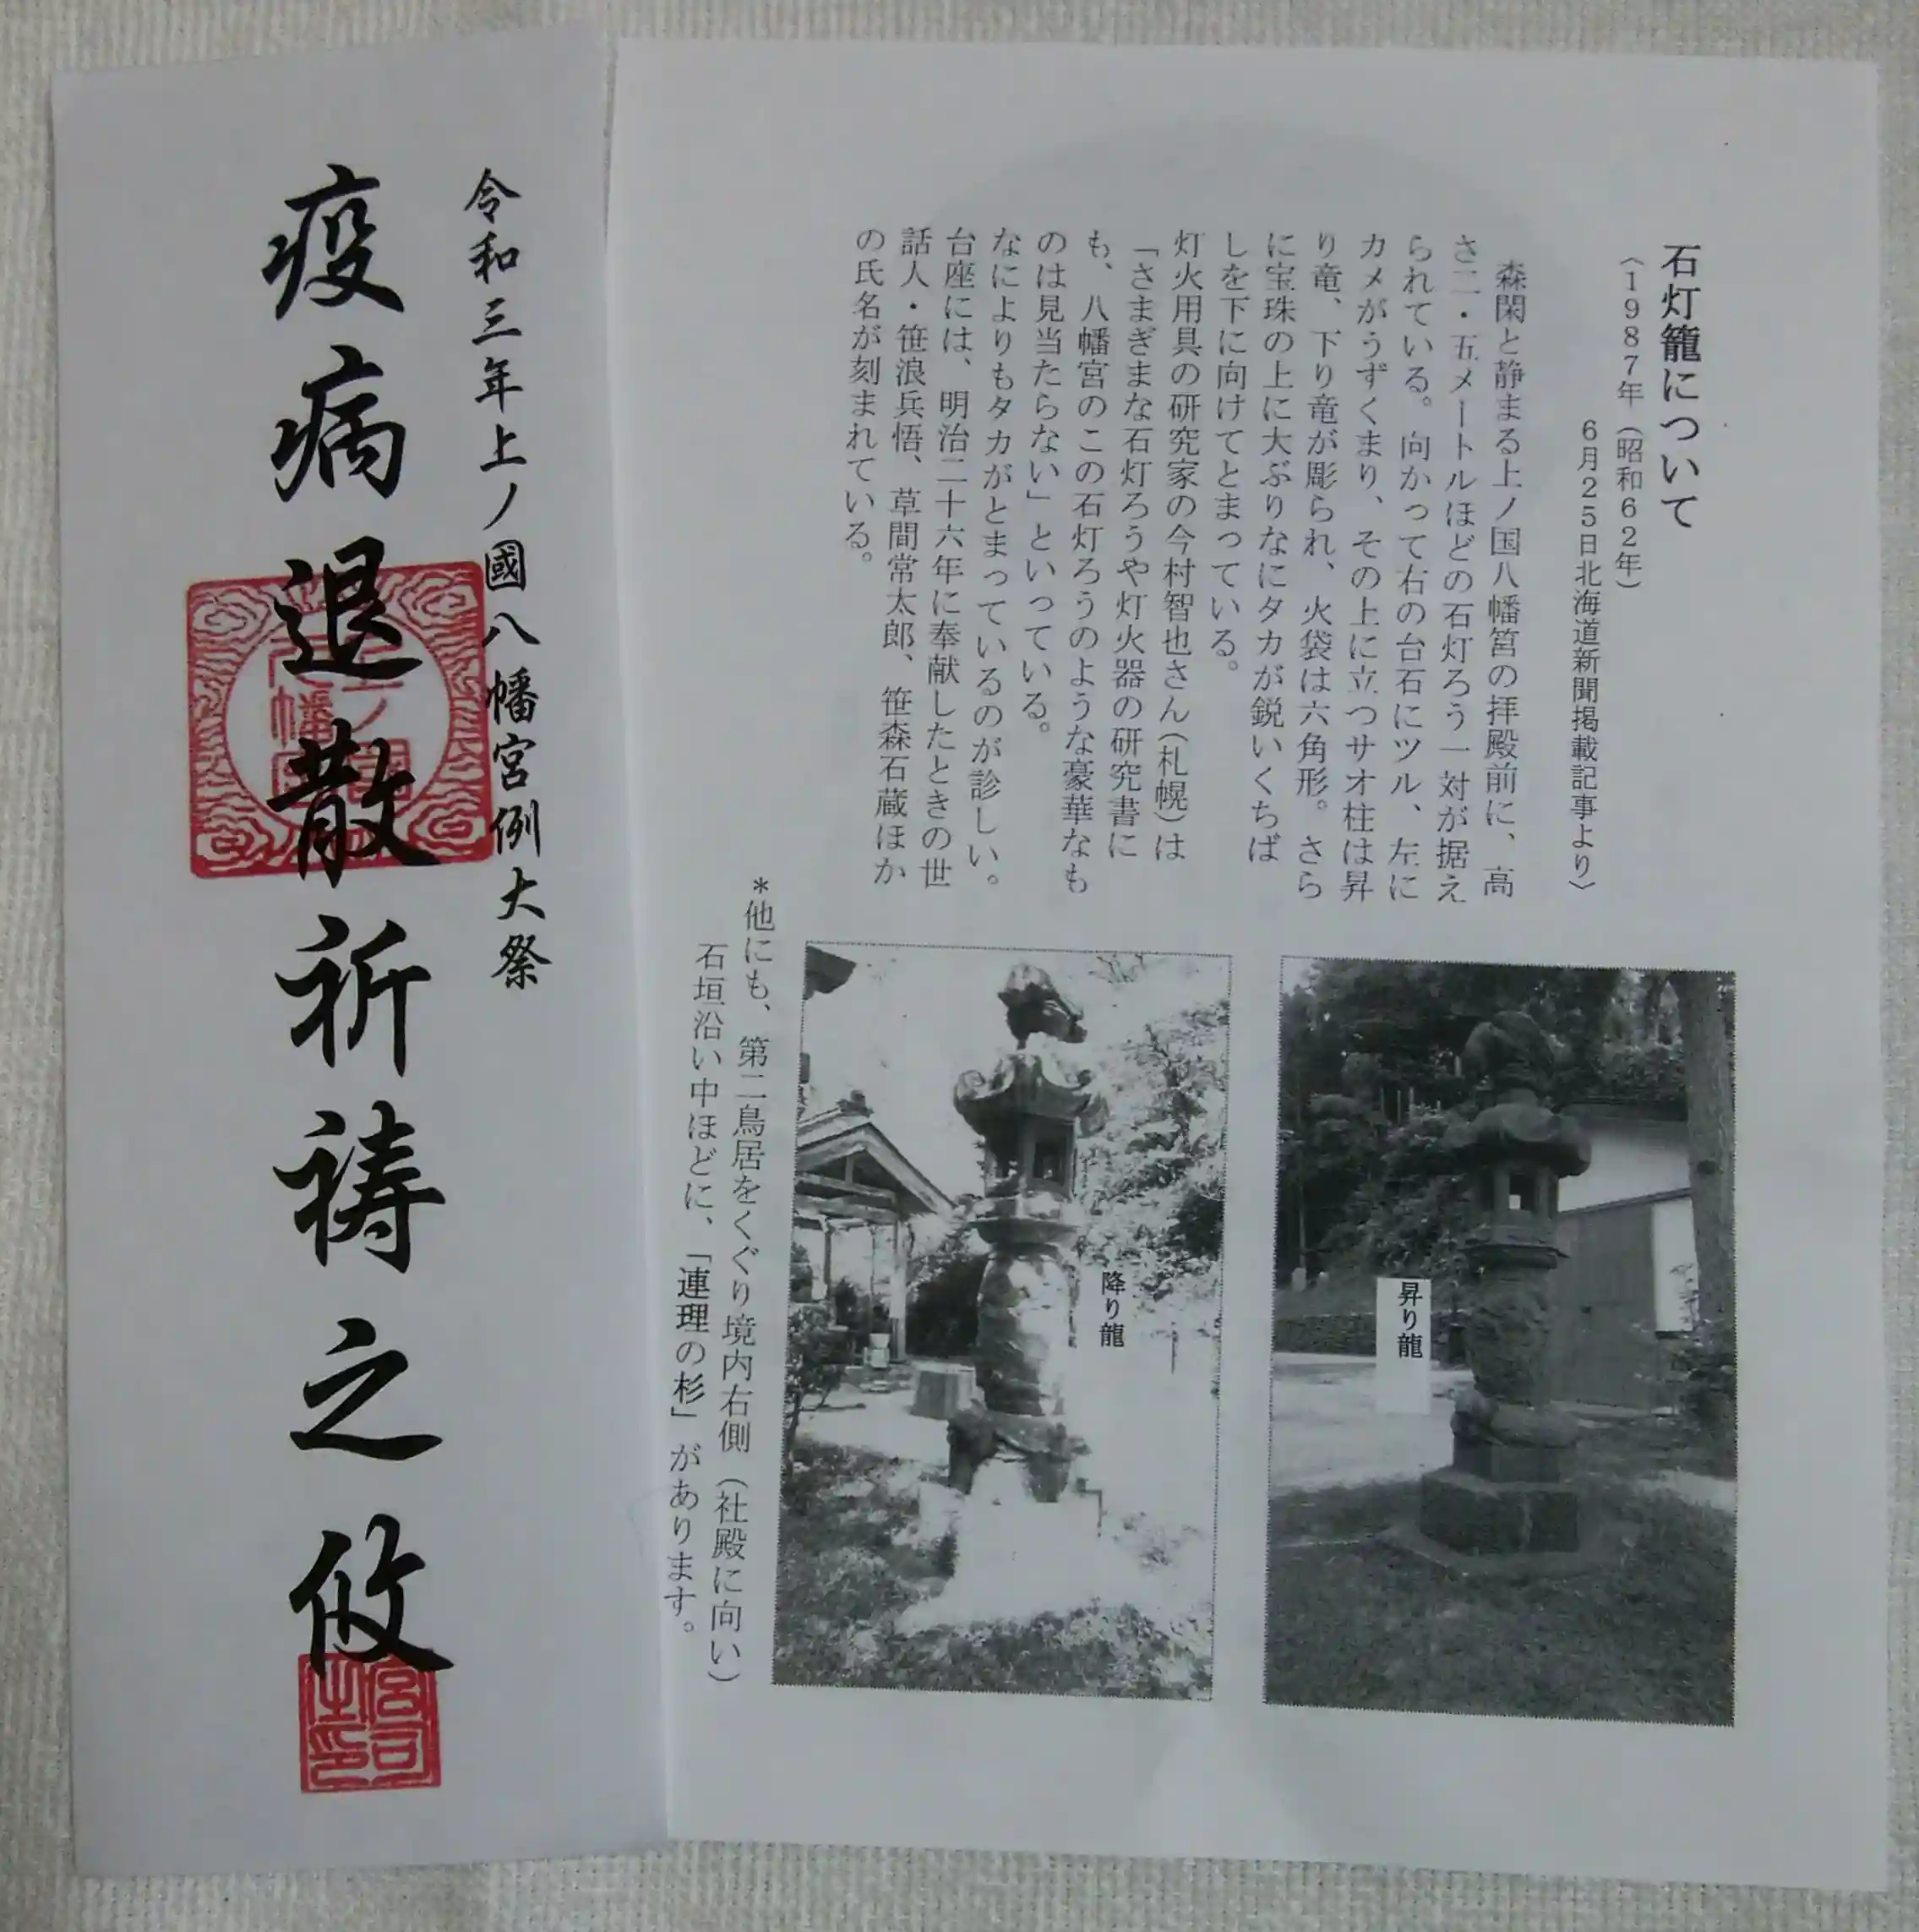 石灯籠について
〈１９８７年（昭和６２年）
６月２５日北海道新聞掲載記事より〉
森閑と静まる上ノ国八幡宮の拝殿前に、高
さ二・五メートルほどの石灯ろう一対が据え
られている。向かって右の台石にツル、左に
カメがうずくまり、その上に立つサオ柱は昇
り竜、下り竜が彫られ、火袋は六角形。さら
に宝珠の上に大ぶりなにタカが鋭いくちば
しを下に向けてとまっている。
灯火用具の研究家の今村智也さん（札幌）は
「さまざまな石灯ろうや灯火器の研究書に
も、八幡宮のこの石灯ろうのような豪華なも
のは見当たらない」といっている。
なによりもタカがとまっているのが診しい。
台座には、明治二十六年に奉献したときの世
話人・笹浪兵悟、草間常太郎、笹森石蔵ほか
の氏名が刻まれている。
昇り龍
降り龍
＊他にも、第二鳥居をくぐり境内右側（社殿に向い）
石垣沿い中ほどに、「連理の杉」があります。
令和三年上ノ國八幡宮例大祭
疫病退散祈祷之攸
上ノ國
八幡宮
宮司
之印